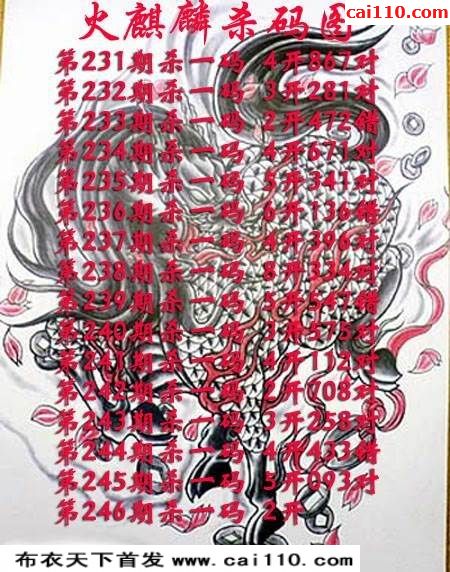 cai110.com
火麒麟杀码图
第231期杀一码 4开867对
第232期杀一码 3开281对
第233期杀一码 2开472错
第234期杀一码 4开671对
第235期杀一码 5开341对
第236期杀一码 6开136错
第237期杀一码 4开396对
第238期杀一码 8开334对
第239期杀一码 5开547错
第240期杀一码 3开575对
第241期杀一码 4开112对
第242期杀一码 2开708对
第243期杀一码 3开258对
第244期杀一码 4开433错
第245期杀一码 5开093对
第246期杀一码 2开
布衣天下首发 www.cai110.com